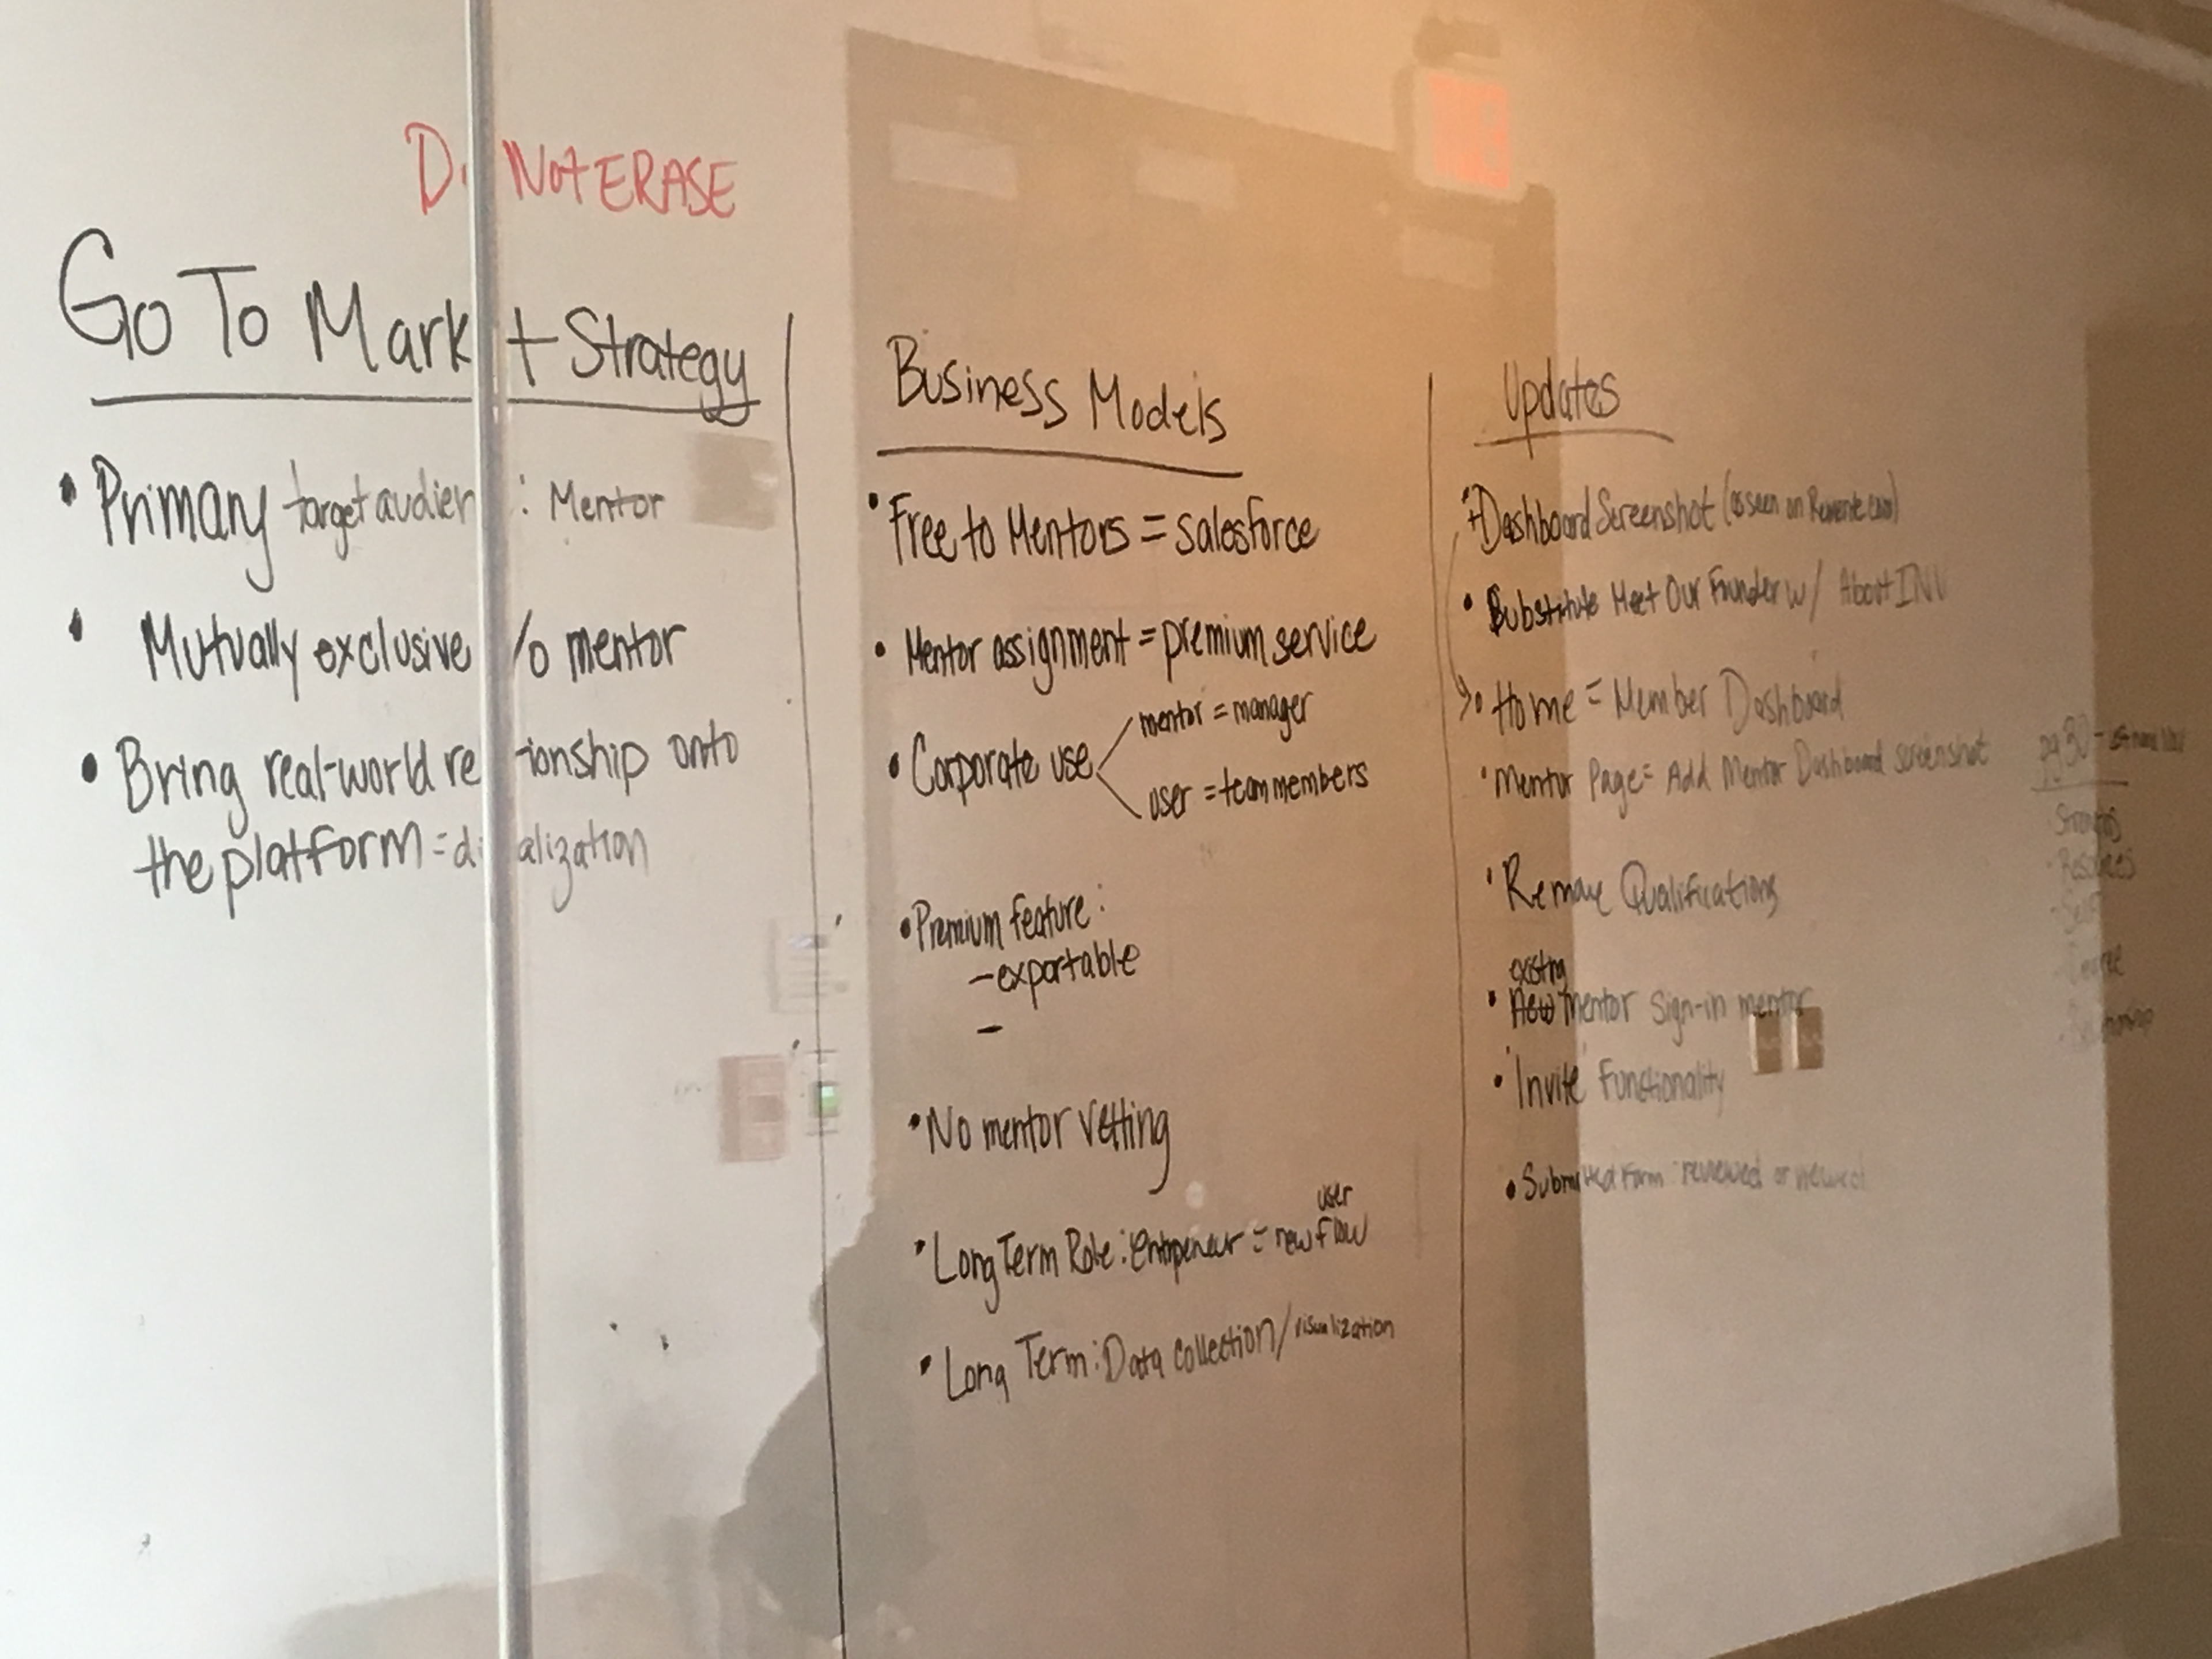 Do Not ERASE
Go To Market Strategy
• Primary target audience: Mentor
• Mutually exclusive w/o mentor
• Bring real-world relationship onto
the platform =
Business Models
• Free to Mentors = salesforce
• Mentor assignment = premium service
• Corporate use
mentor = manager
user = team members
• Premium feature:
- exportable
-
• No mentor vetting
user
• Long Term Role: entrpeneur = new flow
• Long Term: Data collection/visualization
Updates
• Dashboard Screenshot (as seen on
• Substitute Meet Our Founder w/ About
• Home = Member Dashboard
• Mentor Page = Add Mentor Dashboard screenshot
• Remove Qualifications
existing
• New mentor sign-in mentor
• Invite Functionality
• Submitted Form: reviewed or
pg 30 -